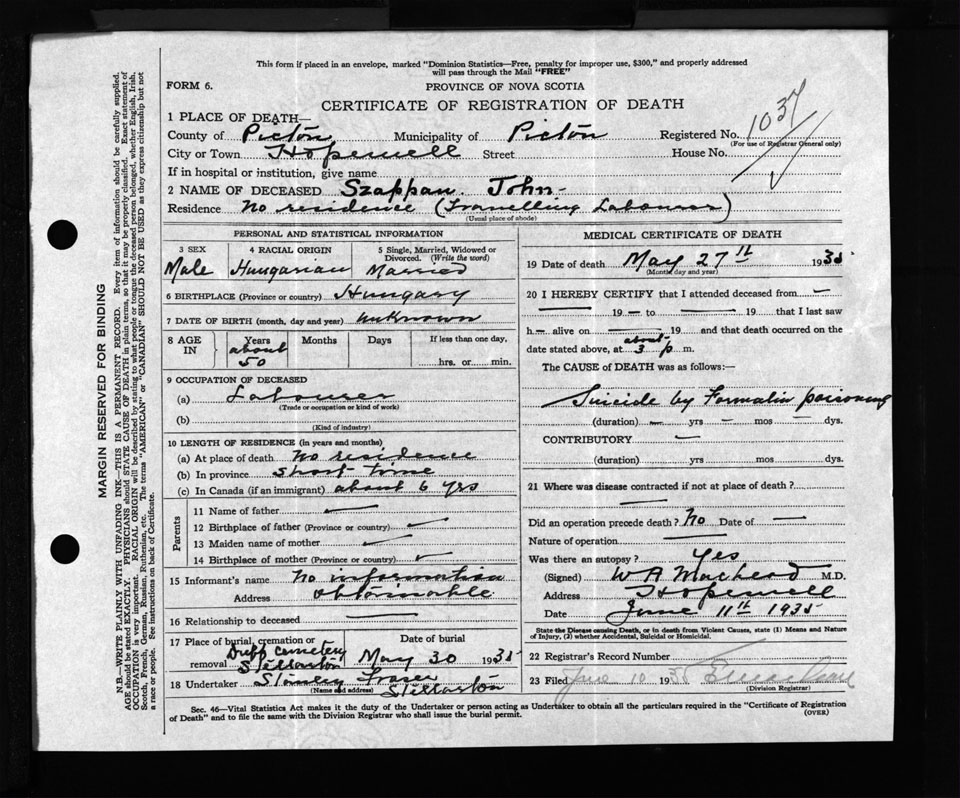 This form if placed in an envelope, marked "Dominion Statistics—Free, penalty for improper use, $300," and properly addressed
will pass through the Mail "FREE"
FORM 6.
PROVINCE OF NOVA SCOTIA
CERTIFICATE OF REGISTRATION OF DEATH
1 PLACE OF DEATH—
County of Pictou Municipality of Pictou Registered No. 1037
(For use of Registrar General only)
City or Town Hopewell Street House No.
If in hospital or institution, give name
2 NAME OF DECEASED Szappan John
Residence No residence (Travelling Labourer)
(Usual place of abode)
PERSONAL AND STATISTICAL INFORMATION
3 SEX 4 RACIAL ORIGIN 5 Single, Married, Widowed or
Divorced. (Write the word)
Male Hungarian Married
6 BIRTHPLACE (Province or country) Hungary
7 DATE OF BIRTH (month, day and year) unknown
8 AGE IN Years Months Days If less than one day,
about 50 hrs. or min.
9 OCCUPATION OF DECEASED
(a) Labourer
(Trade or occupation or kind of work)
(b)
(Kind of industry)
10 LENGTH OF RESIDENCE (in years and months)
(a) At place of death No residence
(b) In province short time
(c) In Canada (if an immigrant) about 6 yrs
Parents
11 Name of father
12 Birthplace of father (Province or country)
13 Maiden name of mother
14 Birthplace of mother (Province or country)
15 Informant's name No information
Address obtainable
16 Relationship to deceased
17 Place of burial, cremation or removal Date of burial
Duff Cemetery
Stellarton May 30 1935
18 Undertaker Stanley Fraser
(Name and address) Stellarton
MEDICAL CERTIFICATE OF DEATH
19 Date of death May 27th 1935
(Month, day and year)
20 I HEREBY CERTIFY that I attended deceased from —
— 19 — to — 19 — that I last saw
h — alive on — 19 and that death occurred on the
date stated above, at about 3 p m.
The CAUSE of DEATH was as follows:—
Suicide by Formalin poisoning
(duration) — yrs — mos — dys.
CONTRIBUTORY —
(duration) yrs mos dys.
21 Where was disease contracted if not at place of death?
—
Did an operation precede death? No Date of —
Nature of operation —
Was there an autopsy? Yes
(Signed) W A MacLeod M.D.
Address Hopewell
Date June 11th 1935
State the Disease causing Death, or in death from Violent Causes, state (1) Means and Nature
of Injury, (2) whether Accidental, Suicidal or Homicidal.
22 Registrar's Record Number
23 Filed June 10 1935
(Division Registrar)
Sec. 46—Vital Statistics Act makes it the duty of the Undertaker or person acting as Undertaker to obtain all the particulars required in the "Certificate of Registration
of Death" and to file the same with the Division Registrar who shall issue the burial permit. (OVER)
MARGIN RESERVED FOR BINDING
N.B.—WRITE PLAINLY WITH UNFADING INK—THIS IS A PERMANENT RECORD. Every item of information should be carefully supplied.
AGE should be stated EXACTLY. PHYSICIANS should STATE CAUSE OF DEATH in plain terms, so that it may be properly classified. Exact statement of
OCCUPATION is very important. RACIAL ORIGIN will be described by stating to what people or tongue the deceased person belonged, whether English, Irish,
Scotch, French, German, Russian, Ruthenian, etc. The terms "AMERICAN" or "CANADIAN" SHOULD NOT BE USED as they express citizenship but not
a race or people. See instructions on back of Certificate.